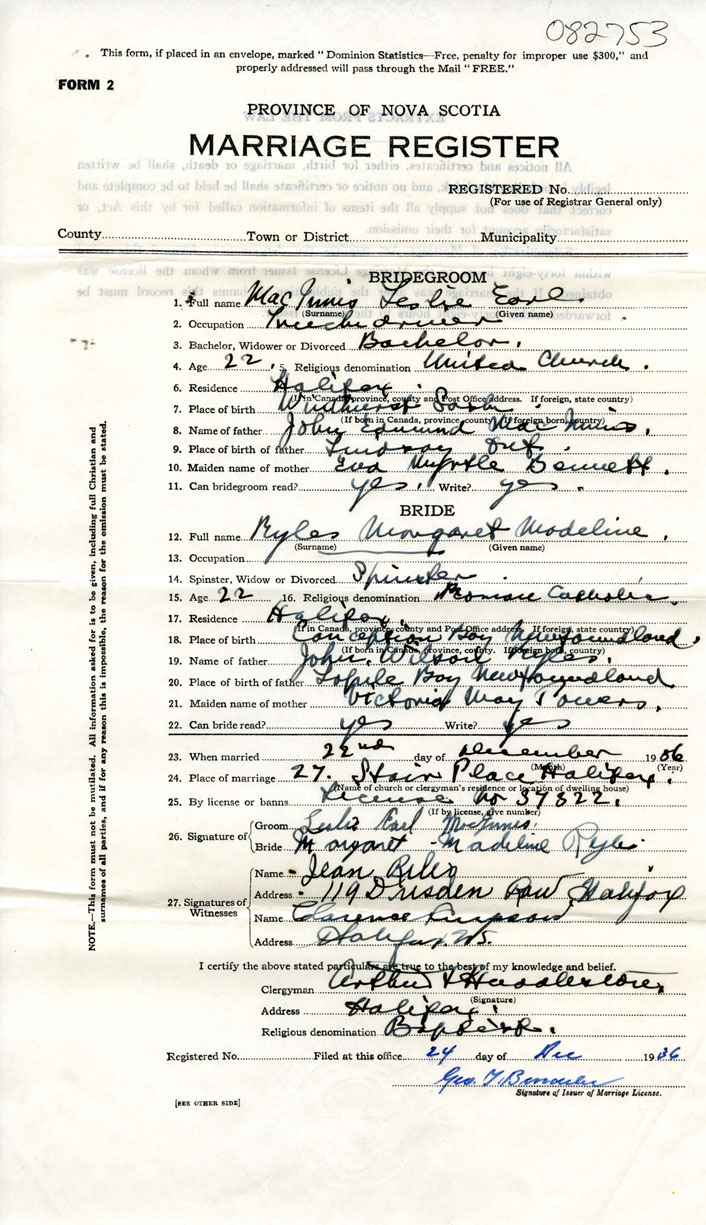 082753
This form, if placed in an envelope, marked "Dominion Statistics—Free, penalty for improper use $300," and
properly addressed will pass through the Mail "FREE."
FORM 2
PROVINCE OF NOVA SCOTIA
MARRIAGE REGISTER
REGISTERED No.
(For use of Registrar General only)
County Town or District Municipality
BRIDEGROOM
1. Full name MacInnis Leslie Earl.
(Surname) (Given name)
2. Occupation driver
3. Bachelor, Widower or Divorced Bachelor.
4. Age 22. 5. Religious denomination United Church.
6. Residence Halifax.
(If in Canada, province, county and Post Office address. If foreign, state country)
7. Place of birth Sask
(If born in Canada, province, county. If foreign born, country)
8. Name of father John Edmund MacInnis.
9. Place of birth of father Lindsay Ont.
10. Maiden name of mother Eva Myrtle Bennett.
11. Can bridegroom read? yes. Write? yes.
BRIDE
12. Full name Ryles Margaret Madeline.
(Surname) (Given name)
13. Occupation
14. Spinster, Widow or Divorced Spinster.
15. Age 22 16. Religious denomination Roman Catholic.
17. Residence Halifax.
(If in Canada, province, county and Post Office address. If foreign, state country)
18. Place of birth Conception Bay Newfoundland.
(If born in Canada, province, county. If foreign born, country)
19. Name of father John Wilson Ryles.
20. Place of birth of father Bay Newfoundland
21. Maiden name of mother Victoria May Towers.
22. Can bride read? yes Write? yes
23. When married 22nd day of December 1936
(Month) (Year)
24. Place of marriage 27. Place Halifax.
(Name of church or clergyman's residence or location of dwelling house)
25. By license or banns License No 37822.
(If by license, give number)
26. Signature of Groom Leslie Earl MacInnis.
Bride Margaret Madeline Ryles.
27. Signatures of Witnesses
Name Jean Riley
Address 119 Dresden Row, Halifax
Name Clarence Simpson
Address Halifax N.S.
I certify the above stated particulars are true to the best of my knowledge and belief.
Clergyman Arthur
(Signature)
Address Halifax.
Religious denomination Baptist.
Registered No. Filed at this office 24 day of Dec 1936
Geo. T.
Signature of Issuer of Marriage License.
[SEE OTHER SIDE]
NOTE.—This form must not be mutilated. All information asked for is to be given, including full Christian and
surnames of all parties, and if for any reason this is impossible, the reason for the omission must be stated.